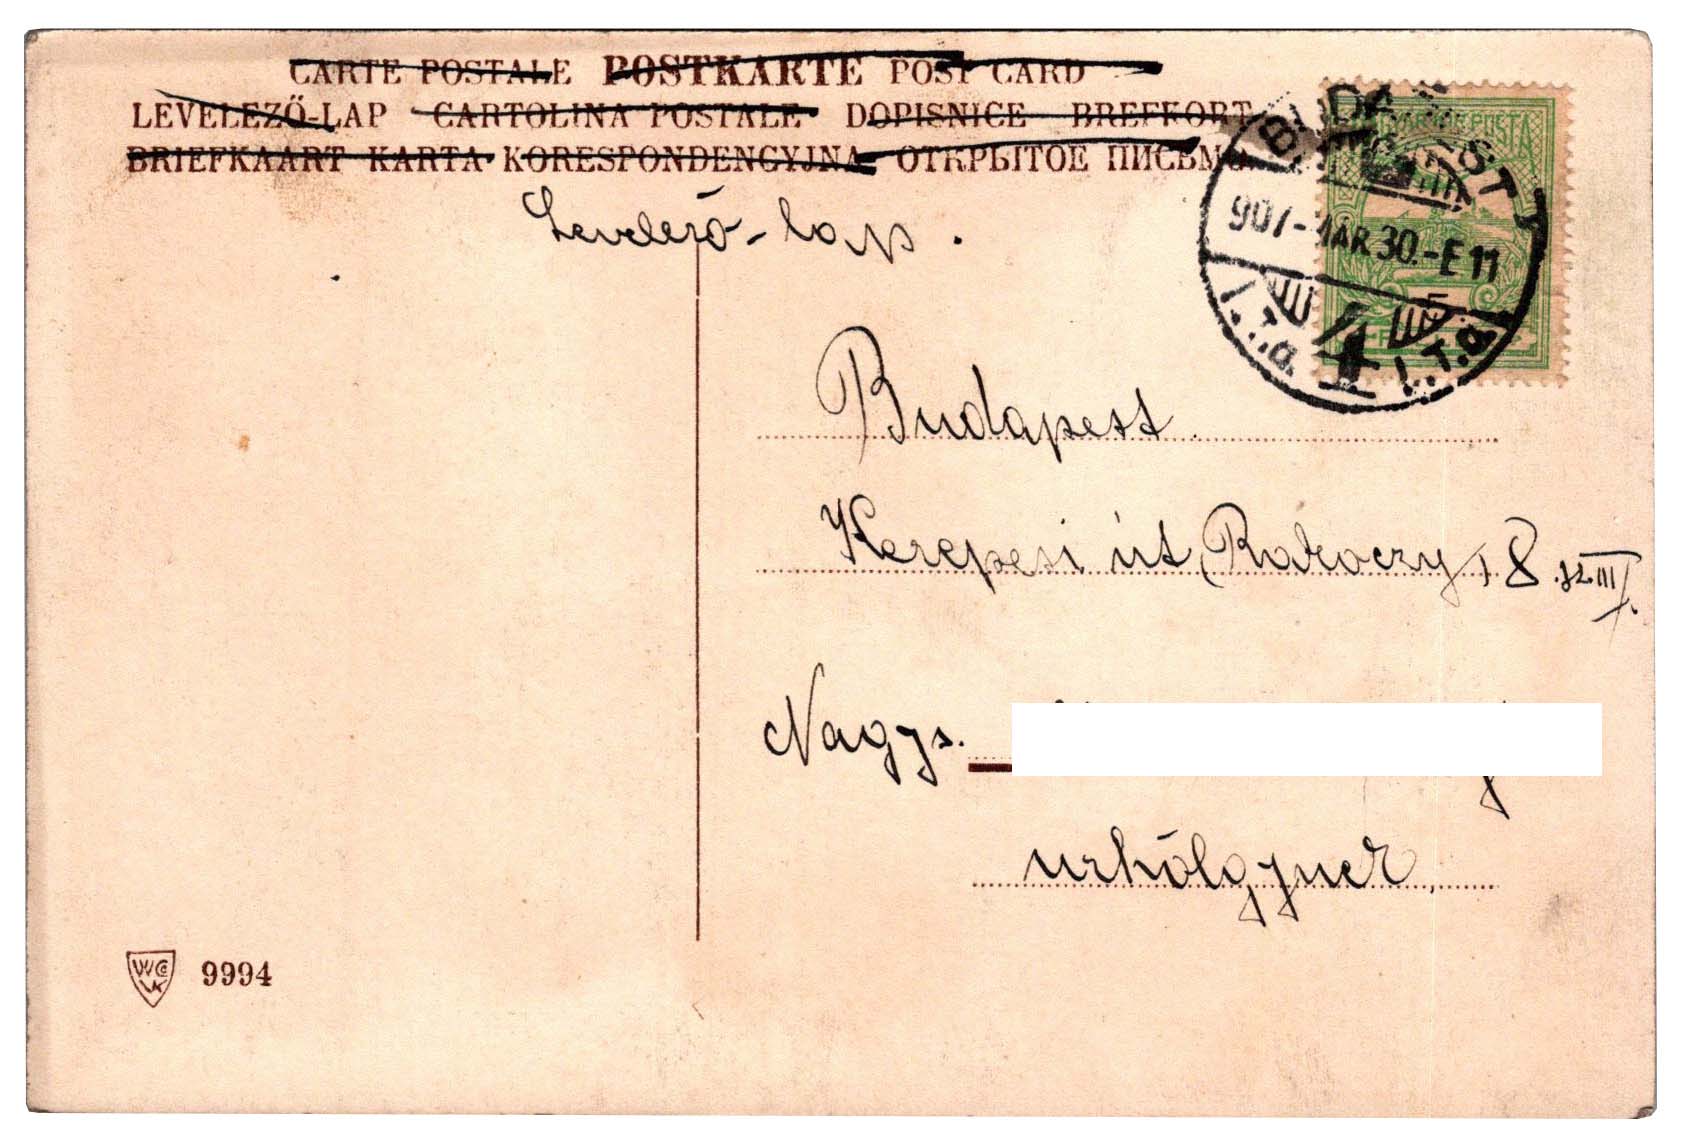 CARTE POSTALE POSTKARTE POST CARD
LEVELEZŐ-LAP CARTOLINA POSTALE DOPISNICE BREFKORT
BRIEFKAART KARTA KORESPONDENCYJNA ОТКРЫТОЕ ПИСЬМО
Levelező-lap.
BUDAPEST
907-MAR 30.-E 11
I.T.a. 4 I.T.a.
MAGYAR KIR. POSTA
5
Budapest
Kerepesi út Rakoczy 18.sz.III
Nagys.
urhölgynek
WCo 9994